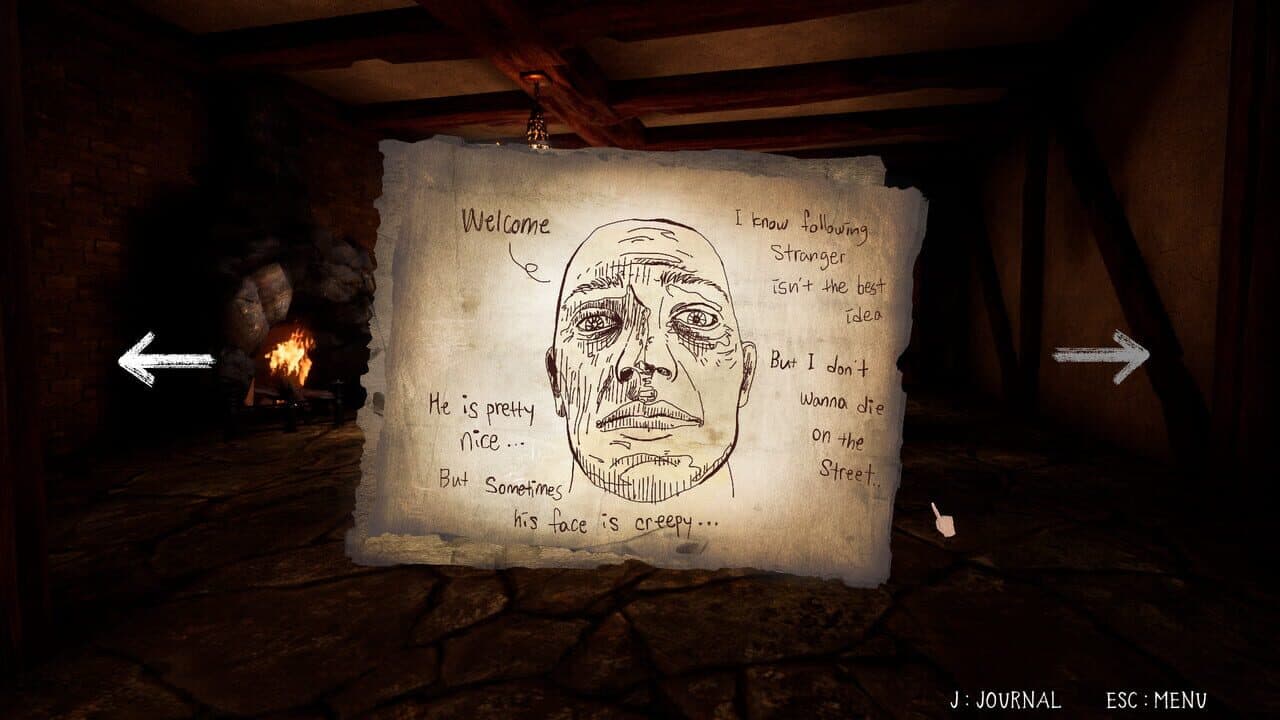 Welcome
I know following
Stranger
isn't the best
idea
But I don't
wanna die
on the
Street..
He is pretty
nice...
But Sometimes
his face is creepy...
J : JOURNAL
ESC : MENU